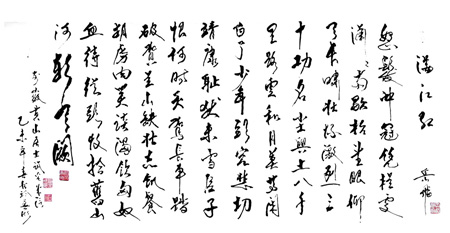 满江红 岳飞
怒髮冲冠凭栏处
潇潇雨歇抬望眼仰
天长啸壮怀激烈三
十功名尘与土八千
里路云和月莫等闲
白了少年头空悲切
靖康耻犹未雪臣子
恨何时灭驾长车踏
破贺兰山缺壮志饥餐
胡虏肉笑谈渴饮匈奴
血待从头收拾舊山
河朝天阙